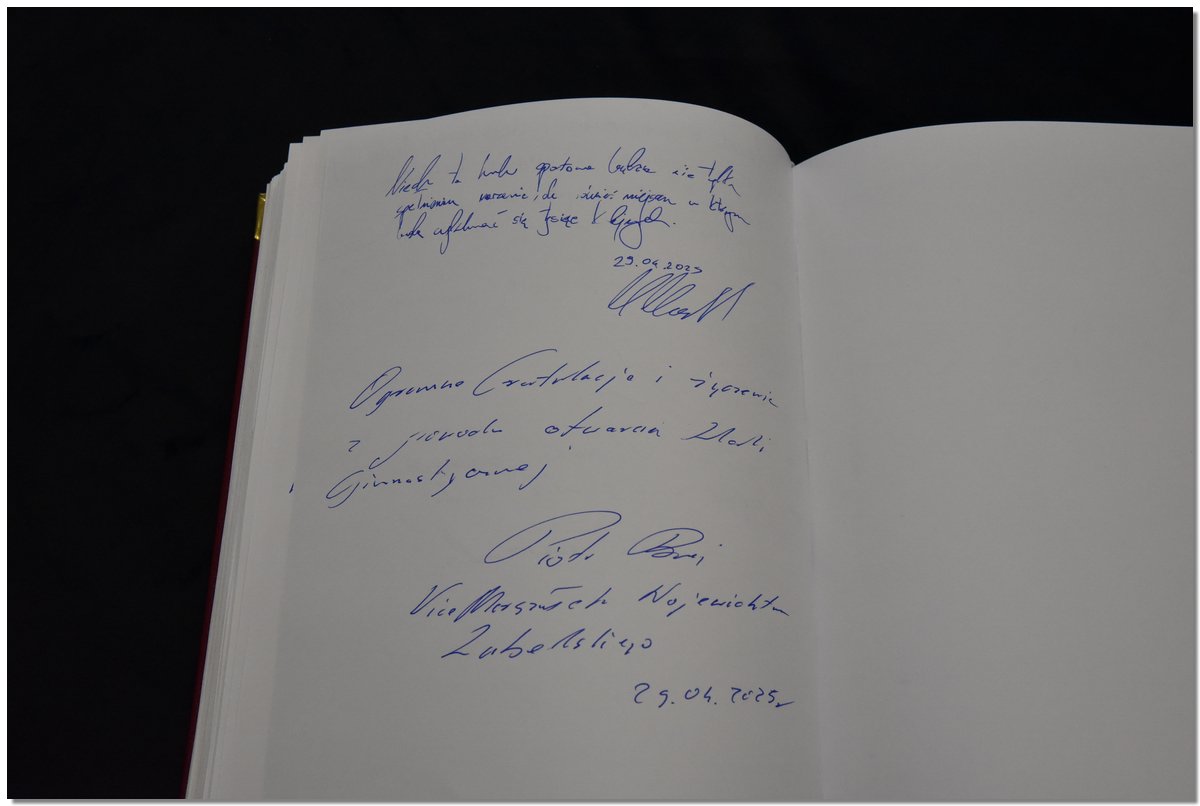 Niech ta hala sportowa będzie nie tylko
spełnieniem marzeń, ale miejscem w którym
będą
29.04.2025
Ogromne Gratulacje i życzenia
z powodu otwarcia Hali
Gimnastycznej
Piotr Breś
ViceMarszałek Województwa
Lubelskiego
29.04.2025r